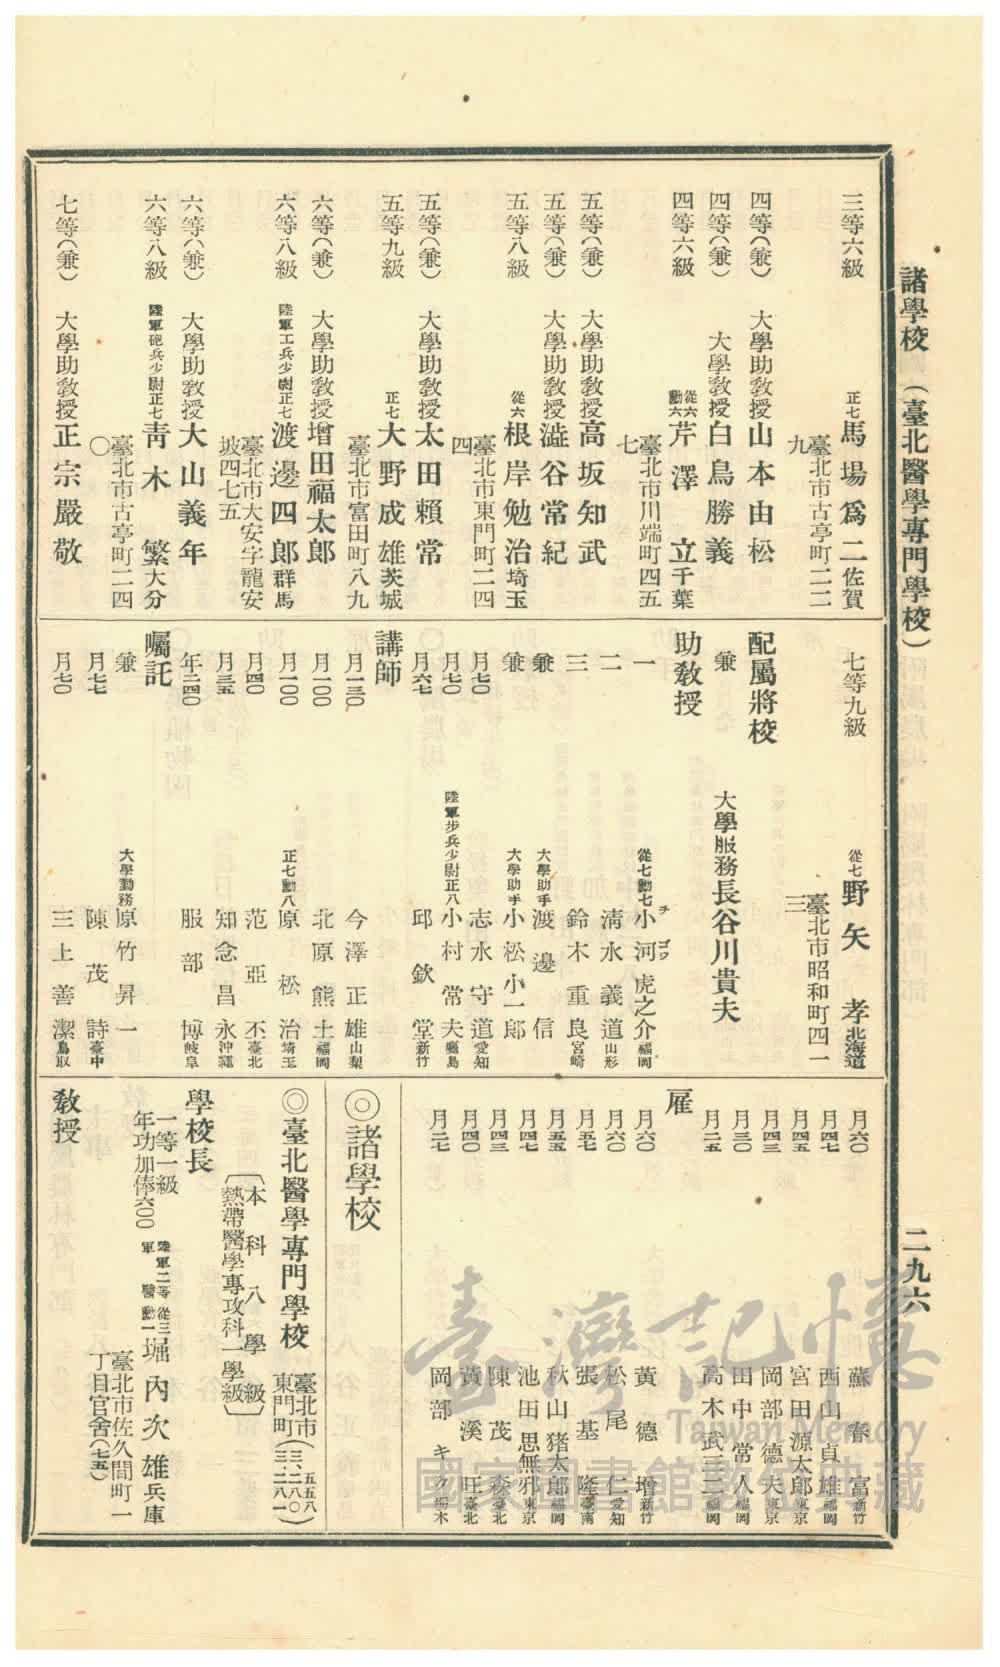 諸學校 （臺北醫學專門學校）
二九六
三等六級 正七 馬場爲二 佐賀
臺北市古亭町二二九
四等(兼) 大學助敎授 山本由松
四等(兼) 大學敎授 白鳥勝義
四等六級 從六勳六 芹澤立 千葉
臺北市川端町四五七
五等(兼) 大學助敎授 高坂知武
五等(兼) 大學助敎授 澁谷常紀
五等八級 從六 根岸勉治 埼玉
臺北市東門町二四四
五等(兼) 大學助敎授 太田賴常
五等九級 正七 大野成雄 茨城
臺北市富田町八九
六等(兼) 大學助敎授 增田福太郎
六等八級 陸軍工兵少尉正七 渡邊四郎 群馬
臺北市大安字龍安坡四七五
六等(兼) 大學助敎授 大山義年
六等八級 陸軍砲兵少尉正七 靑木繁 大分
臺北市古亭町二四〇
七等(兼) 大學助敎授 正宗嚴敬
七等九級 從七 野矢孝 北海道
臺北市昭和町四一三
配屬將校
兼 大學服務 長谷川貴夫
助敎授
一 從七勳七 小河虎之介 福岡
二 淸水義道 山形
三 鈴木重良 宮崎
月七〇 志水守道 愛知
兼 大學助手 渡邊信
兼 大學助手 小松小一郎
月七〇 陸軍步兵少尉正八 小村常夫
月六七 邱欽堂 新竹
講師
月一三〇 今澤正雄 山梨
月一〇〇 北原熊土 福岡
月一〇〇 正七勳八 原松治 埼玉
月四〇 范亞丕 臺北
月三五 知念昌永 沖繩
年二四〇 服部博 岐阜
囑託
兼 大學勤務 原竹昇一
月七七 陳茂詩 臺中
月七〇 三上善潔 鳥取
月六〇 蘇春富 新竹
月四七 西山貞雄 福岡
月四五 宮田源太郎 東京
月四三 岡部德夫 東京
月三〇 田中常人 福岡
月二五 高木武三二 福岡
雇
月六〇 黃德增 新竹
月六〇 松尾仁 愛知
月五七 張基隆 臺南
月五五 秋山猪太郎 福岡
月四七 池田思無邪 東京
月四三 陳茂森 臺北
月四〇 黃溪旺 臺北
月二七 岡部キク 栃木
◎諸學校
◎臺北醫學專門學校 臺北市東門町(三、二八〇)(三、二八一)五五八
〔本科八學級
熱帶醫學專攻科一學級〕
學校長
一等一級 年功加俸六〇〇 陸軍二等軍醫 從三勳一 堀內次雄 兵庫
臺北市佐久間町一丁目官舍(七五)
敎授
臺灣記憶
Taiwan Memory
國家圖書館數位典藏